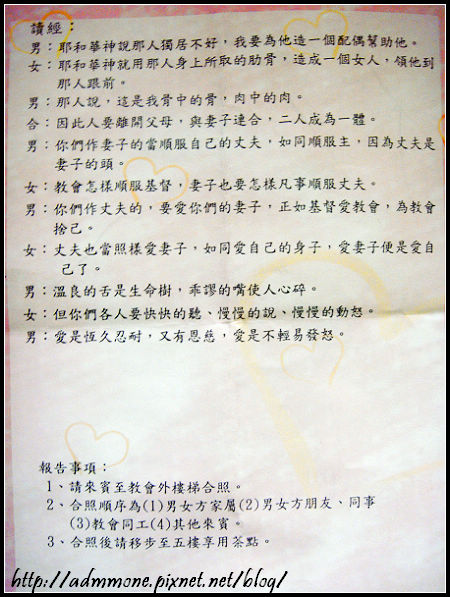 讀經：
男：耶和華神說那人獨居不好，我要為他造一個配偶幫助他。
女：耶和華神就用那人身上所取的肋骨，造成一個女人，領他到
那人跟前。
男：那人說，這是我骨中的骨，肉中的肉。
合：因此人要離開父母，與妻子連合，二人成為一體。
男：你們作妻子的當順服自己的丈夫，如同順服主，因為丈夫是
妻子的頭。
女：教會怎樣順服基督，妻子也要怎樣凡事順服丈夫。
男：你們作丈夫的，要愛你們的妻子，正如基督愛教會，為教會
捨己。
女：丈夫也當照樣愛妻子，如同愛自己的身子，愛妻子便是愛自
己了。
男：溫良的舌是生命樹，乖謬的嘴使人心碎。
女：但你們各人要快快的聽、慢慢的說、慢慢的動怒。
男：愛是恆久忍耐，又有恩慈，愛是不輕易發怒。
報告事項：
1、請來賓至教會外樓梯合照。
2、合照順序為(1)男女方家屬(2)男女方朋友、同事
(3)教會同工(4)其他來賓。
3、合照後請移步至五樓享用茶點。
http://admmone.pixnet.net/blog/